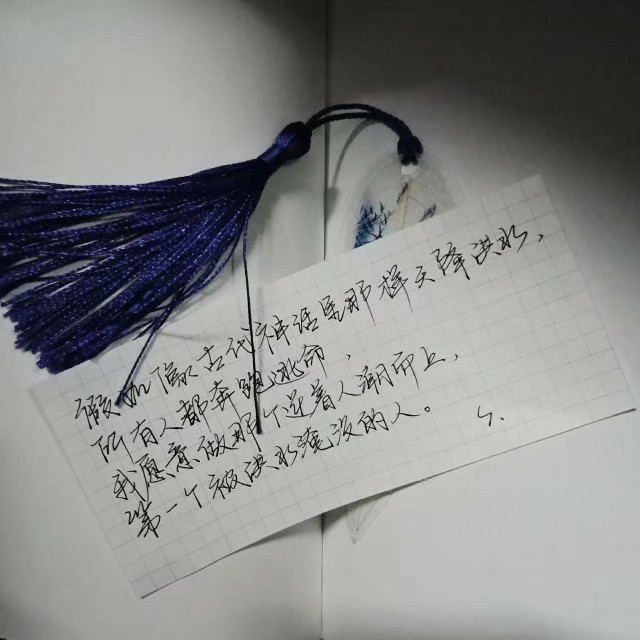 假如像古代神话里那样天降洪水，
所有人都奔跑逃命，
我愿意做那个逆着人潮而上，
第一个被洪水淹没的人。
S.